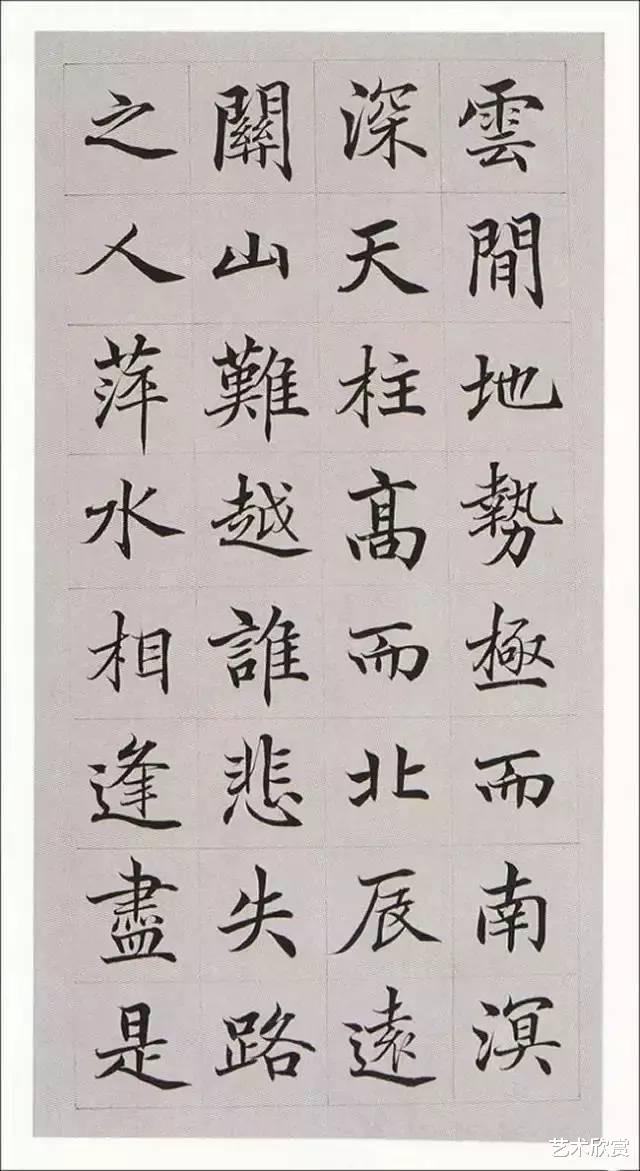 雲間地勢極而南溟
深天柱高而北辰遠
關山難越誰悲失路
之人萍水相逢盡是
艺术欣赏